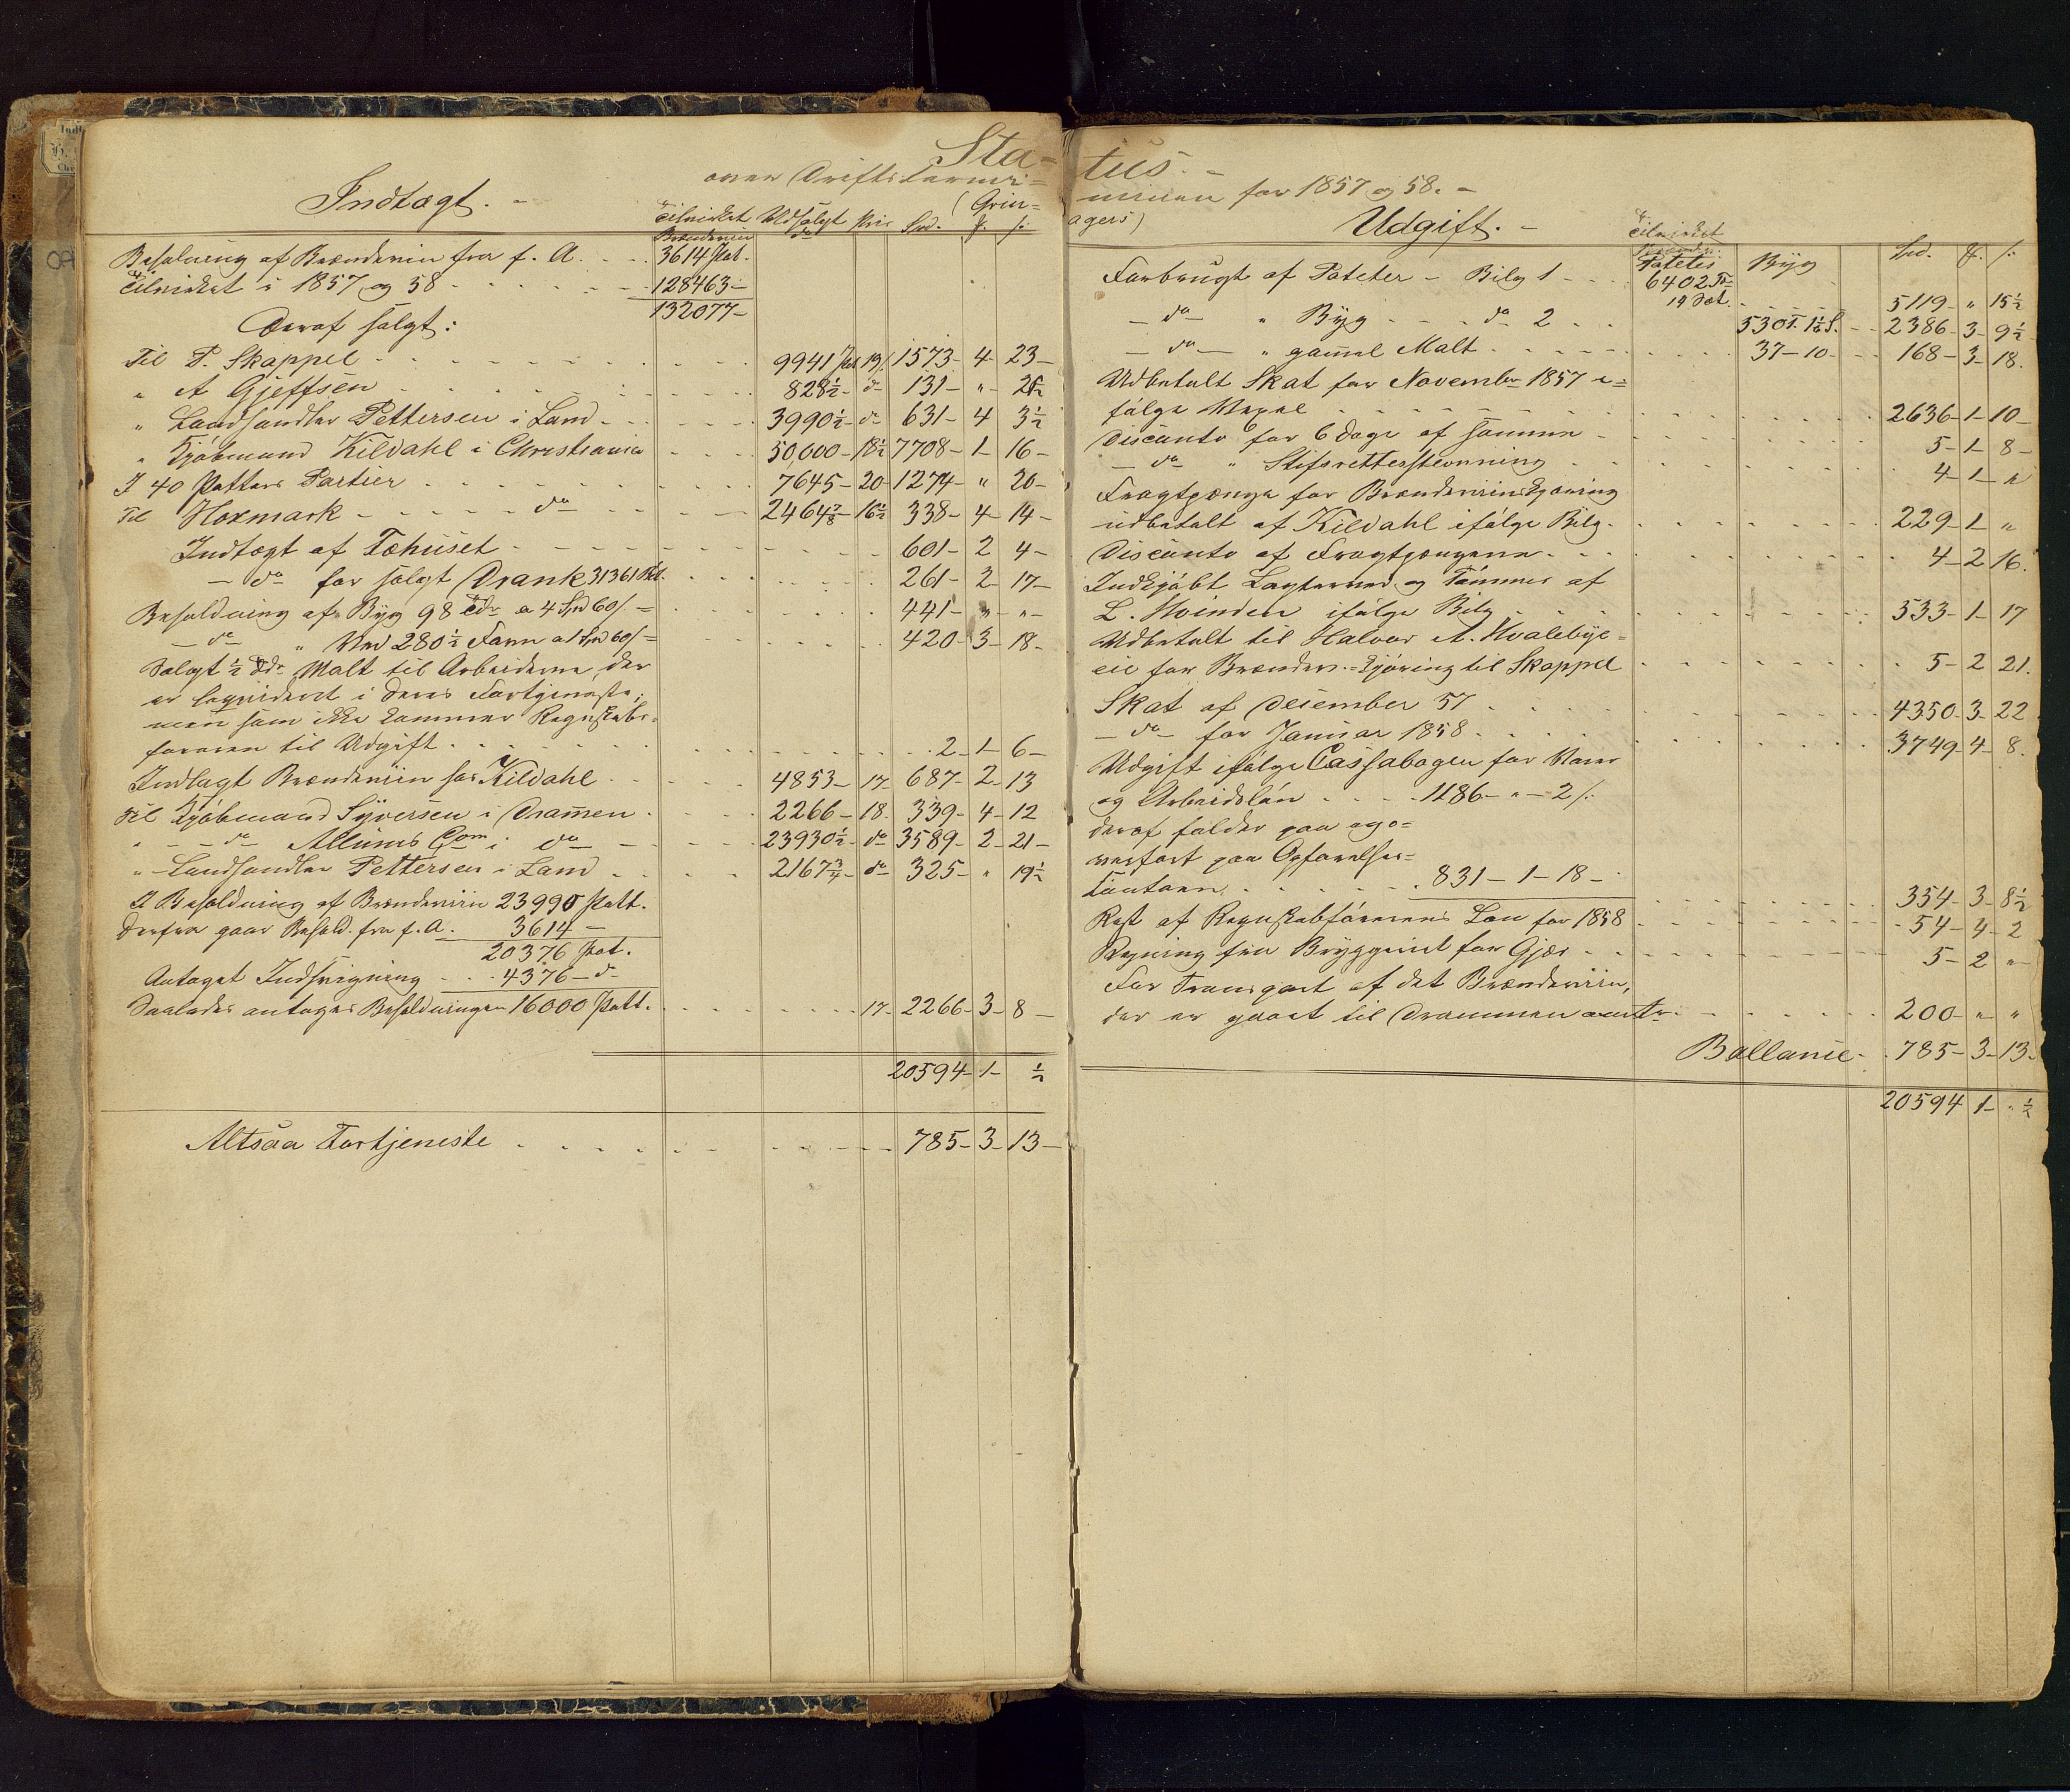 Sta-
over Driftstermi=
(Grin=
Indtægt. -
Tilvirket Brændeviin Udsolgt do Pris Spd. ƒ. s:
Beholdning af Brændeviin fra f. A. 3614 Pot.
Tilvirket i 1857 og 58 128463-
132077-
Deraf solgt:
Til P. Skappel 9941 Pot 19/ 1573- 4- 23-
" A Gjeffsen 828½- do 131- " -
" Landhandler Pettersen i Land 3990½- do 631- 4 3½
" Kjøbmand Kildahl i Christiania 50,000- 18½ 7708- 1- 16-
I 40 Potters Partier 7645- 20- 1274- " 20-
Til Hoxmark do 2464⅞- 16½ 338- 4- 14-
Indtægt af Fæhuset 601- 2 4-
- do for solgt Drank 31361 Pot. 261- 2- 17-
Beholdning af Byg 98 Tdr a 4 Spd 60/- 441- " - " -
- do " Ved 280½ Favn a 1 Spd 60/= 420- 3- 18-
Solgt ½ Tdr Malt til Arbeiderne, der
er liqvideret i deres Fortjeneste,
men som ikke kommer Regnskabs-
føreren til Udgift 2- 1- 6-
Indlagt Brændeviin hos Kildahl 4853- 17- 687- 2- 13
Til Kjøbmand Syversen i Drammen 2266- 18. 339- 4- 12
" - do Allums Com i do 23930½- do 3589- 2- 21-
" Landhandler Pettersen i Land 2167¾- do 325- " 19½
Beholdning af Brændeviin 23990 Pott.
Derfra gaar Behold. fra f. A. 3614 -
20376 Pot.
Antaget Indsvigning 4376- do
Saaledes antages Beholdningen 16000 Pott. 17- 2266- 3- 8-
20594- 1- ½
Altsaa Fortjeneste 785- 3- 13-
tus. -
minen for 1857 og 58. -
agers)
Udgift. -
Tilvirket Poteter Byg Spd. ƒ. s:
Forbrugt af Poteter - Bilag 1 6402 Tr 5119- " 15½
- do " Byg do 2 530 T. 1½ S. 2386- 3- 9½
- do - " gammel Malt 37-10- 168- 3- 18.
Udbetalt Skat for November 1857 i=
følge Vexel 2636- 1- 10-
Disconto for 6 Dage af samme 5- 1- 8-
- do " Stifsretterstevning 4- 1- "
Fragtpenge for Brændeviinskjøring
udbetalt af Kildahl ifølge Bilag 229- 1- "
Disconto af Fragtpengene 4- 2 16.
Indkjøbt Lagterved og Tømmer af
L. Hvinden ifølge Bilag 533- 1- 17
Udbetalt til Halvor A. Hvaleby=
eie for Brændev.=kjøring til Skappel 5- 2 21.
Skat af December 57 4350- 3- 22
- do - for Januar 1858 3749- 4- 8.
Udgift ifølge Cassabogen for Varer
og Arbeidsløn 1186- " - 2/:
deraf falder paa
overført paa Opførelses=
Contoen 831- 1- 18- 354- 3- 8½
Rest af Regnskabsførerens Løn for 1858 54- 4- 2
Regning fra Bryggeriet for Gjær 5- 2 "-
For Transport af det Brændeviin,
der er gaaet til Drammen 200- " - "
Ballance- 785- 3- 13-
20594 1- " ½